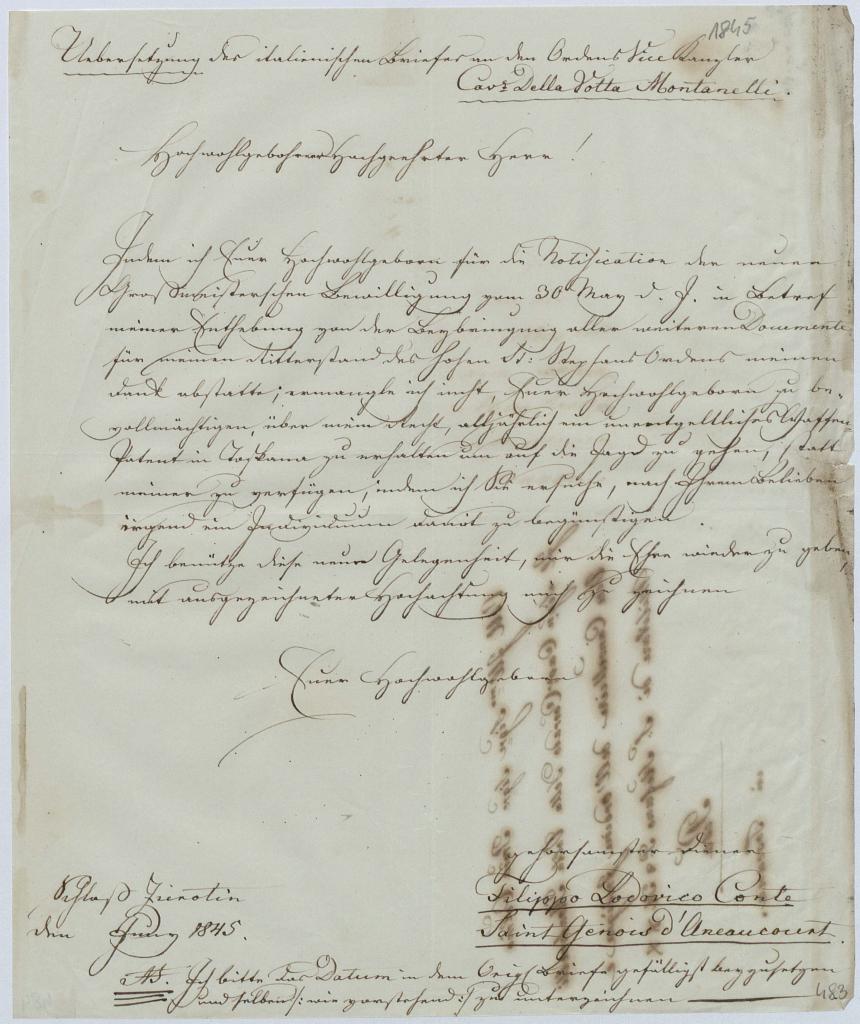 1845
Uebersetzung des italienischen Briefes an den Ordens Vice Kanzler
Cavr. Della Votta Montanelli.
Hochwohlgebohrner Hochgeehrter Herr!
Indem ich Euer Hochwohlgeborn für die Notification der neuen
Großmeisterschen Bewilligung vom 30 May d. J. in Betref
meiner Enthebung von der Beybringung aller weiteren Documente
für meinen Ritterstand des hohen St: Stephans Ordens meinen
Dank abstatte; ermangle ich nicht, Euer Hochwohlgeborn zu be-
vollmächtigen, über mein Recht, alljährlich ein unentgeltliches Waffen
Patent in Toskana zu erhalten um auf die Jagd zu gehen, statt
meiner zu verfügen, indem ich Sie ersuche, nach Ihrem Belieben
irgend ein Individuum damit zu begünstigen
Ich benütze diese neue Gelegenheit, mir die Ehre wieder zu geben,
mit ausgezeichneter Hochachtung mich zu zeichnen
Euer Hochwohlgeborn
gehorsamster Diener
Filippo Lodovico Conte
Saint Genois d'Aneaucourt.
Schloß Zierotin
den Juny 1845.
NB. Ich bitte das Datum in dem Origl Briefe gefälligst beyzusetzen
und selben /: wie vorstehend :/ zu unterzeichnen
483